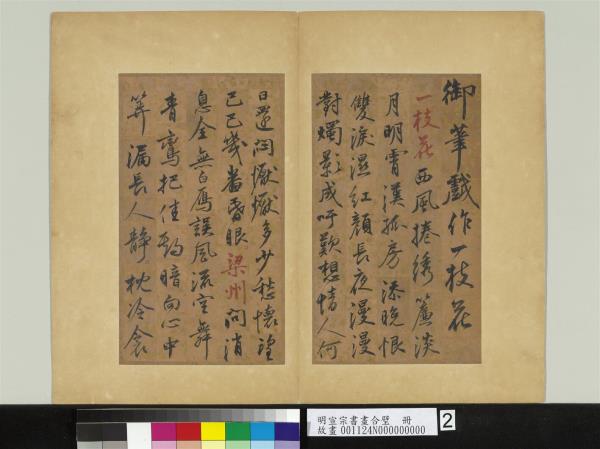 御筆戲作一枝花
一枝花西風捲綉簾淡
月明霄漢孤房添晚恨
雙淚濕紅顏長夜漫漫
對燭影成吁歎想情人何
日還悶懨懨多少愁懷望
巴巴幾番昏眼梁州問消
息全無白鴈誤風流空舞
青鸞把佳期暗向心中
筭漏長人靜枕冷衾
明宣宗書畫合璧 冊
故畫 001124N000000000
2